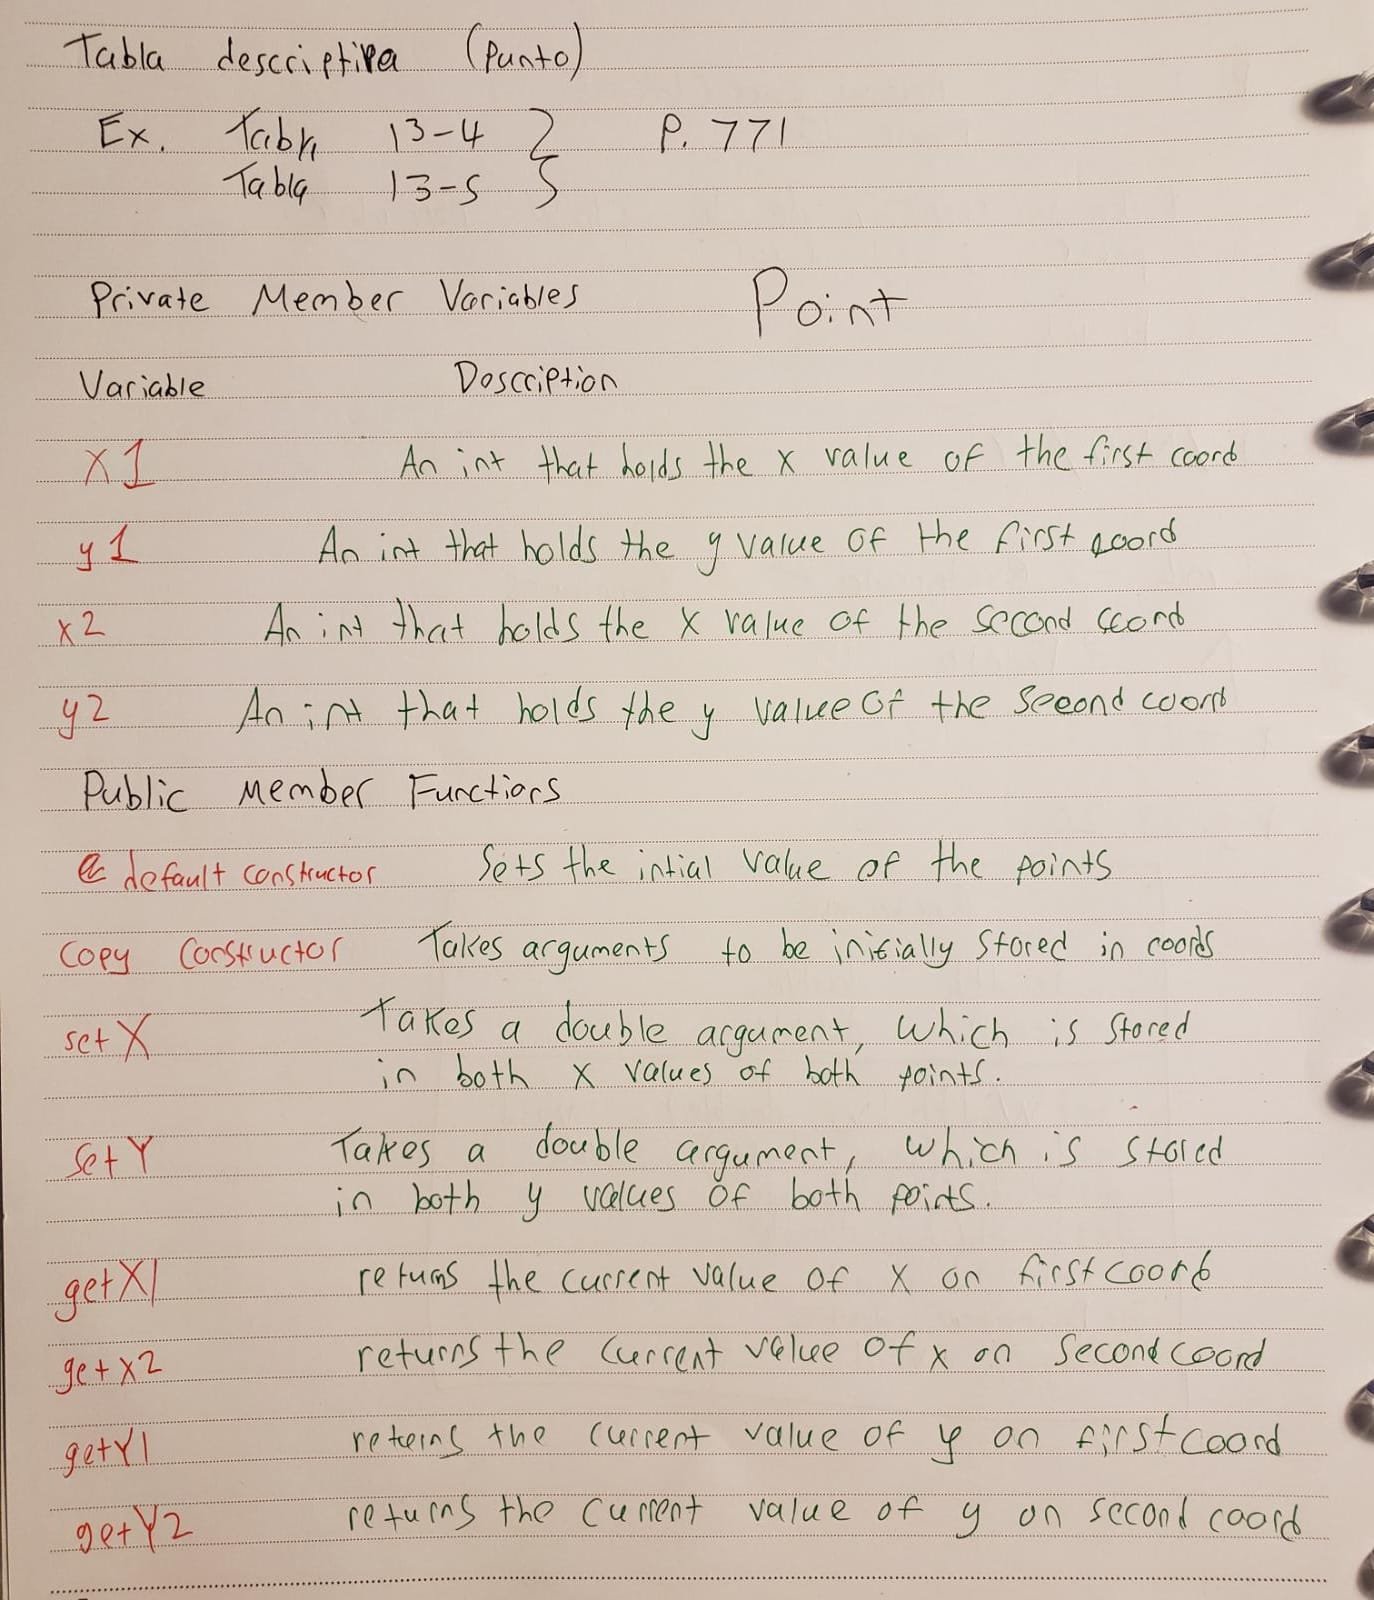 Tabla descriptiva (Punto)
Ex. Tabla 13-4 } P. 771
Tabla 13-5
Private Member Variables Point
Variable Description
X1 An int that holds the x value of the first coord
y1 An int that holds the y value of the first coord
x2 An int that holds the x value of the second coord
y2 An int that holds the y value of the second coord
Public Member Functions
default constructor Sets the intial value of the points
Copy Constructor Takes arguments to be initially stored in coords
set X Takes a double argument, which is stored
in both x values of both points.
Set Y Takes a double argument, which is stored
in both y values of both points.
getX1 returns the current value of X on first coord
getx2 returns the current value of x on second coord
getY1 returns the current value of y on first coord
getY2 returns the current value of y on second coord